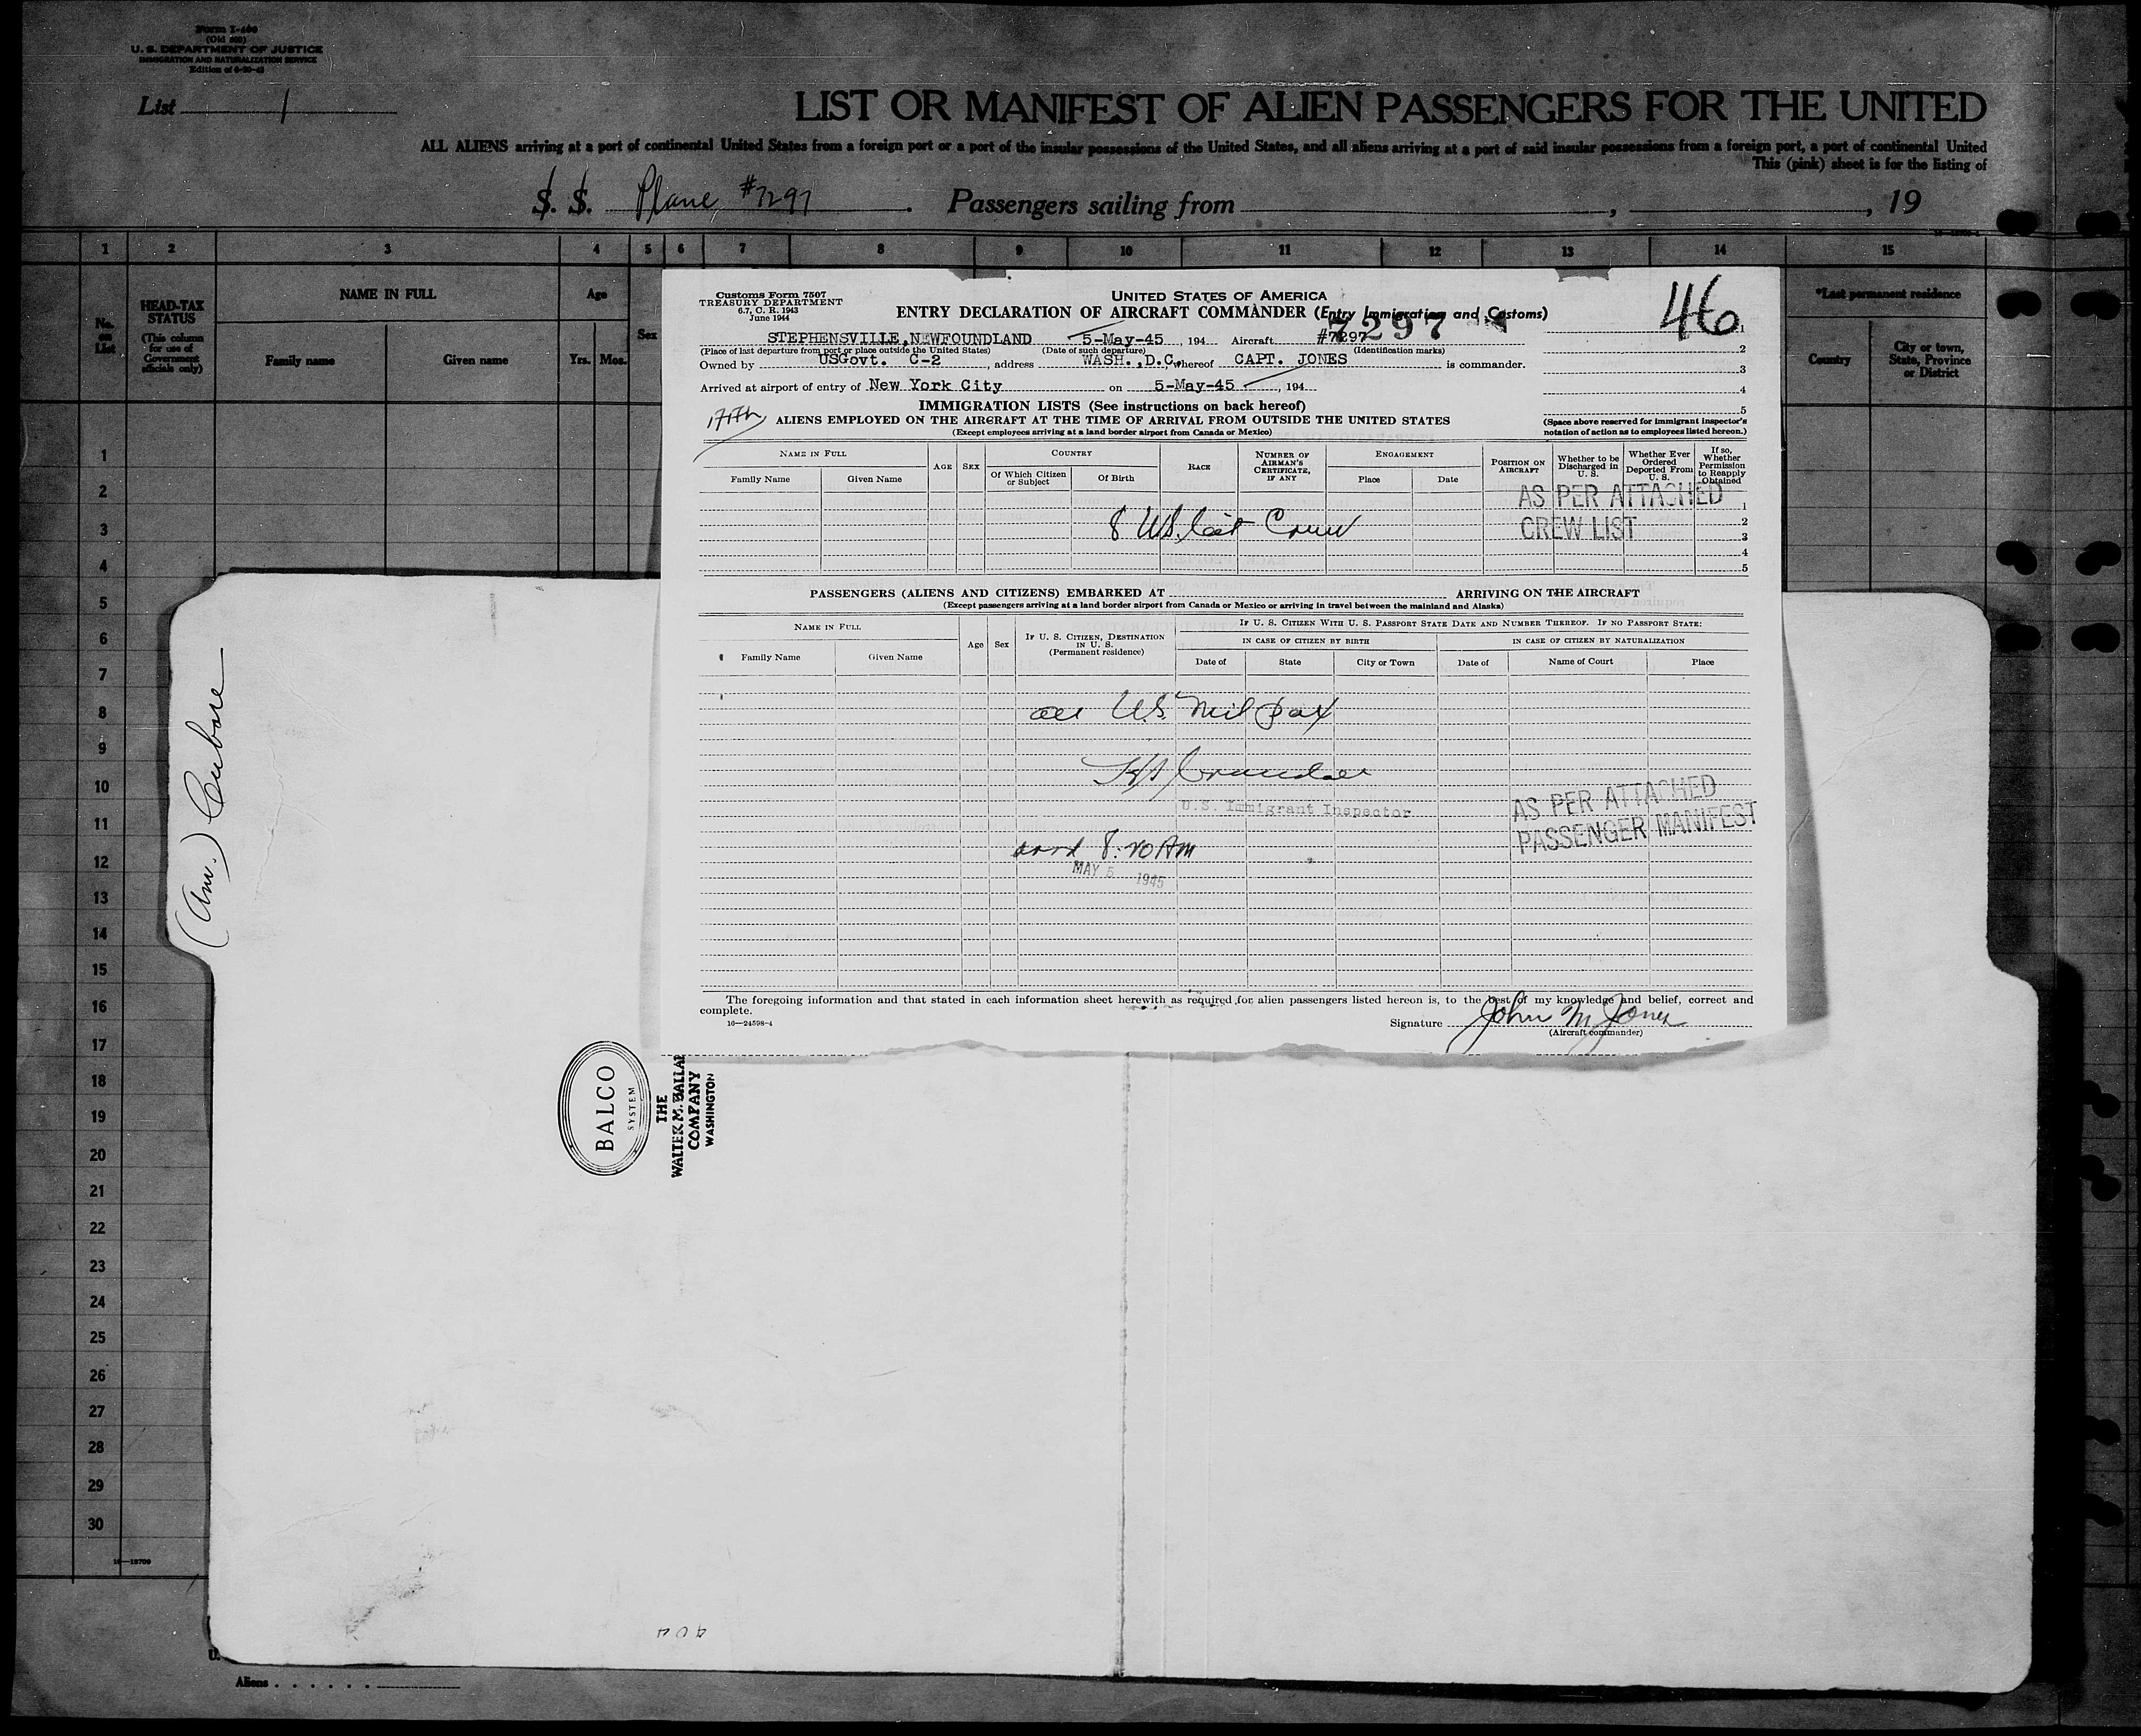 Form I-466
(Old 500)
U. S. DEPARTMENT OF JUSTICE
IMMIGRATION AND NATURALIZATION SERVICE
List 1
LIST OR MANIFEST OF ALIEN PASSENGERS FOR THE UNITED
ALL ALIENS arriving at a port of continental United States from a foreign port or a port of the insular possessions of the United States, and all aliens arriving at a port of said insular possessions from a foreign port, a port of continental United
This (pink) sheet is for the listing of
S. S. Plane #7297. Passengers sailing from , , 19
1 2 3 4 5 6 7 8 9 10 11 12 13 14 15
No. on List
HEAD-TAX STATUS
(This column for use of Government officials only)
NAME IN FULL
Family name Given name
Age
Yrs. Mos.
Sex
*Last permanent residence
Country
City or town, State, Province or District
Customs Form 7507
TREASURY DEPARTMENT
6.7, C. R. 1943
June 1944
46
UNITED STATES OF AMERICA
ENTRY DECLARATION OF AIRCRAFT COMMANDER (Entry Immigration and Customs)
7297
STEPHENSVILLE,NEWFOUNDLAND 5-May-45 194 Aircraft #7297
(Place of last departure from port or place outside the United States) (Date of such departure) (Identification marks)
Owned by USGovt. C-2, address WASH.,D.C., whereof CAPT. JONES is commander.
Arrived at airport of entry of New York City on 5-May-45, 194
1
2
3
4
5
IMMIGRATION LISTS (See instructions on back hereof)
ALIENS EMPLOYED ON THE AIRCRAFT AT THE TIME OF ARRIVAL FROM OUTSIDE THE UNITED STATES
(Except employees arriving at a land border airport from Canada or Mexico)
(Space above reserved for immigrant inspector's
notation of action as to employees listed hereon.)
NAME IN FULL
Family Name Given Name
AGE SEX
COUNTRY
Of Which Citizen or Subject Of Birth
RACE
NUMBER OF AIRMAN'S CERTIFICATE, IF ANY
ENGAGEMENT
Place Date
POSITION ON AIRCRAFT
Whether to be Discharged in U. S.
Whether Ever Ordered Deported From U. S.
If so, Whether Permission to Reapply Obtained
AS PER ATTACHED
CREW LIST
8 US. Cit Crew
1
2
3
4
5
PASSENGERS (ALIENS AND CITIZENS) EMBARKED AT ARRIVING ON THE AIRCRAFT
(Except passengers arriving at a land border airport from Canada or Mexico or arriving in travel between the mainland and Alaska)
NAME IN FULL
Family Name Given Name
Age Sex
IF U. S. CITIZEN, DESTINATION IN U. S.
(Permanent residence)
IF U. S. CITIZEN WITH U. S. PASSPORT STATE DATE AND NUMBER THEREOF. IF NO PASSPORT STATE:
IN CASE OF CITIZEN BY BIRTH IN CASE OF CITIZEN BY NATURALIZATION
Date of State City or Town Date of Name of Court Place
all U.S. Mil pax
U.S. Immigrant Inspector
AS PER ATTACHED
PASSENGER MANIFEST
8:20 AM
MAY 5 1945
The foregoing information and that stated in each information sheet herewith as required for alien passengers listed hereon is, to the best of my knowledge and belief, correct and
complete.
16—24598-4
Signature John M Jones
(Aircraft commander)
1
2
3
4
5
6
7
8
9
10
11
12
13
14
15
16
17
18
19
20
21
22
23
24
25
26
27
28
29
30
BALCO
SYSTEM
THE
WALTER M. BALLA
COMPANY
WASHINGTON
16—18709
U.
Aliens